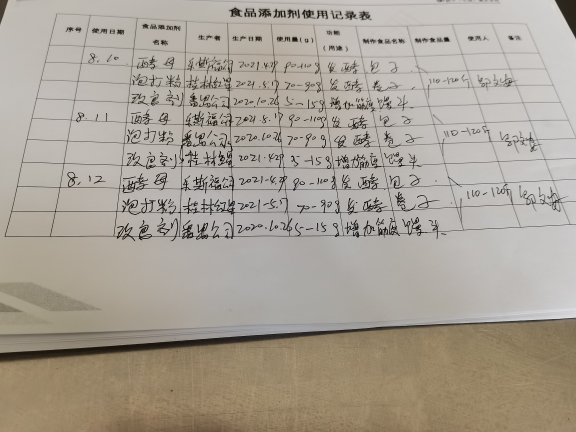 食品添加剂使用记录表
序号 使用日期 食品添加剂名称 生产者 生产日期 使用量(g) 功能(用途) 制作食品名称 制作食品量 使用人 备注
8.10 酵母 乐斯福公司 2021.4.29 90-110g 发酵 包子
泡打粉 桂林红星 2021.5.17 70-90g 发酵 卷子 110-120个
改良剂 番禺公司 2020.10.26 5-15g 增加筋度 馒头
8.11 酵母 乐斯福公司 2021.5.17 90-110g 发酵 包子
泡打粉 番禺公司 2020.10.26 70-90g 发酵 卷子 110-120个
改良剂 桂林红星 2021.4.29 5-15g 增加筋度 馒头
8.12 酵母 乐斯福公司 2021-4.29 90-110g 发酵 包子
泡打粉 桂林红星 2021-5.17 70-90g 发酵 卷子 110-120个
改良剂 番禺公司 2020.10.26 5-15g 增加筋度 馒头